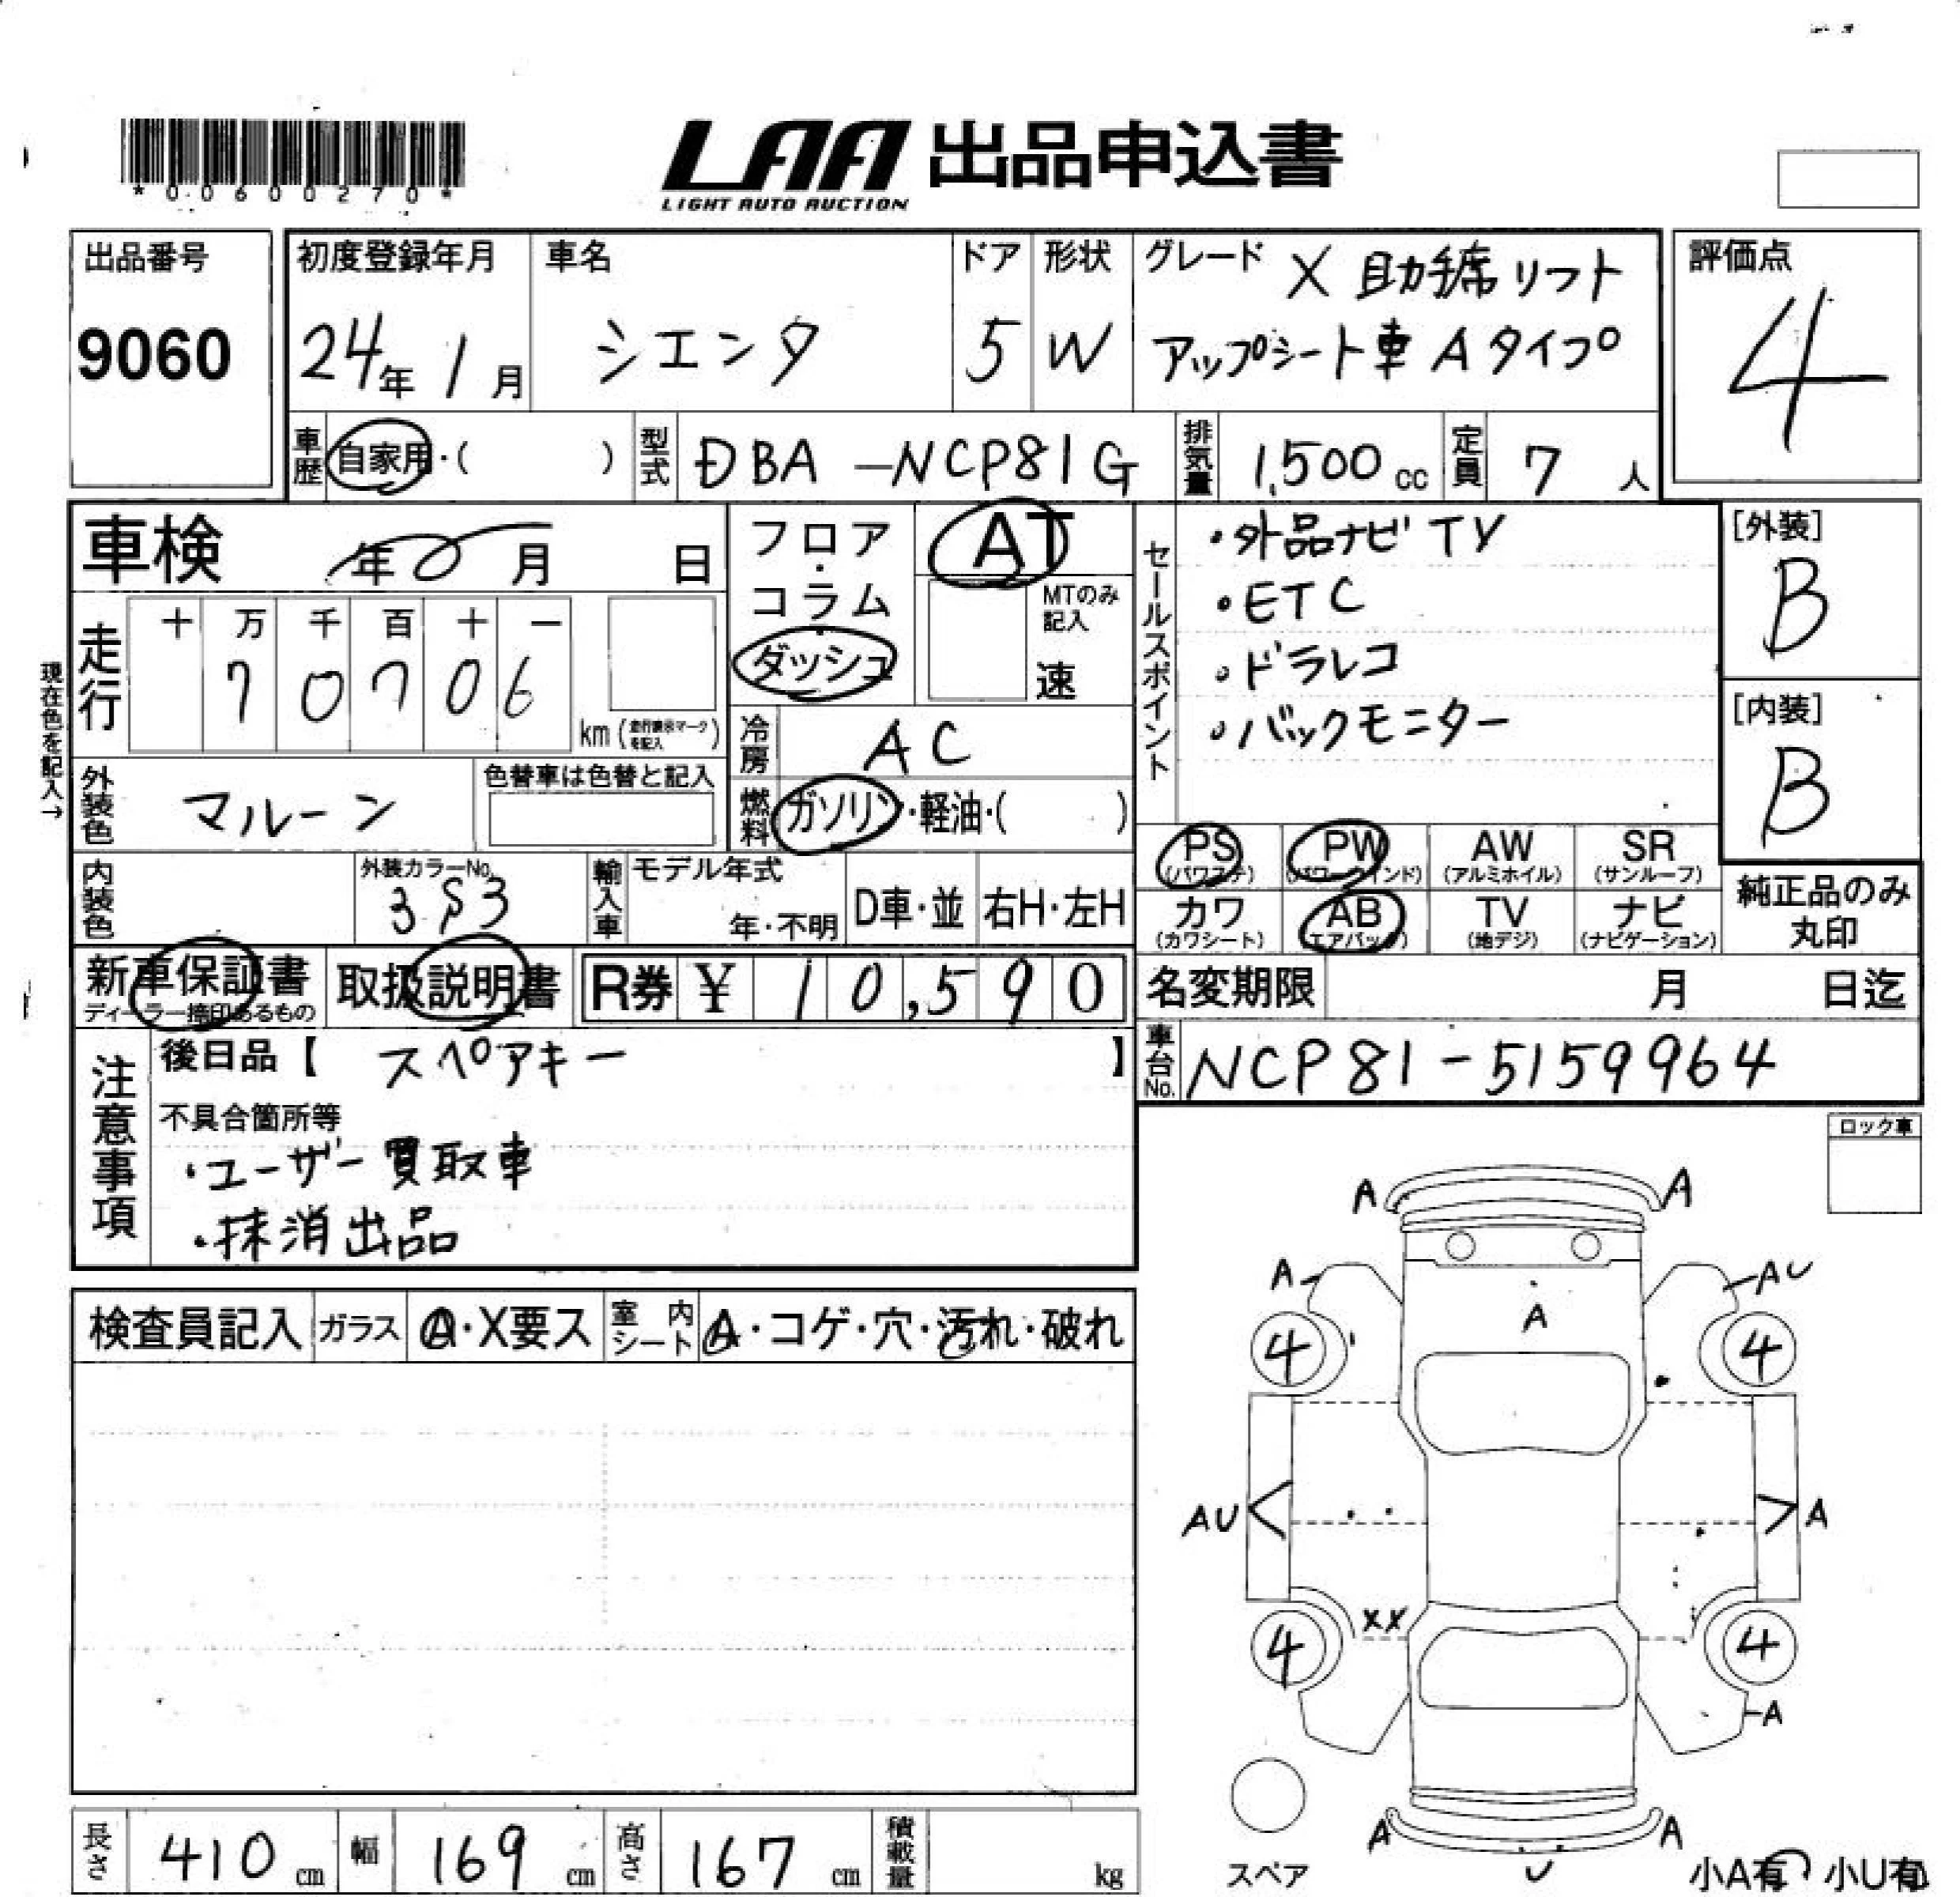 *00600270*
LAA 出品申込書
LIGHT AUTO AUCTION
出品番号
9060
初度登録年月
24年 1月
車名
シエンタ
ドア
5
形状
W
グレード X 助手席リフト
アップシート車 Aタイプ
評価点
4
車歴 自家用・( )
型式 DBA-NCP81G
排気量 1,500 cc
定員 7 人
車検 年 月 日
フロア・コラム・ダッシュ
AT
MTのみ記入
速
セールスポイント
・外品ナビTV
・ETC
・ドラレコ
・バックモニター
[外装]
B
[内装]
B
現在色を記入→
走行
十 万 千 百 十 一
7 0 7 0 6
km (走行表示マークを記入)
冷房 AC
外装色 マルーン
色替車は色替と記入
燃料 ガソリン・軽油・( )
PS (パワステ)
PW (パワーウインド)
AW (アルミホイル)
SR (サンルーフ)
カワ (カワシート)
AB (エアバッグ)
TV (地デジ)
ナビ (ナビゲーション)
純正品のみ丸印
内装色
外装カラーNo.
3S3
輸入車
モデル年式
年・不明
D車・並
右H・左H
新車保証書
ディーラー捺印あるもの
取扱説明書
R券 ¥ 10,590
名変期限 月 日迄
車台No. NCP81-5159964
注意事項
後日品【 スペアキー 】
不具合箇所等
・ユーザー買取車
・抹消出品
ロック車
検査員記入
ガラス A・X要ス
室内シート A・コゲ・穴・汚れ・破れ
A A
A AU
A
4 4
AU A
XX
4 4
A
A A
U
スペア
小A有 小U有
長さ 410 cm
幅 169 cm
高さ 167 cm
積載量 kg